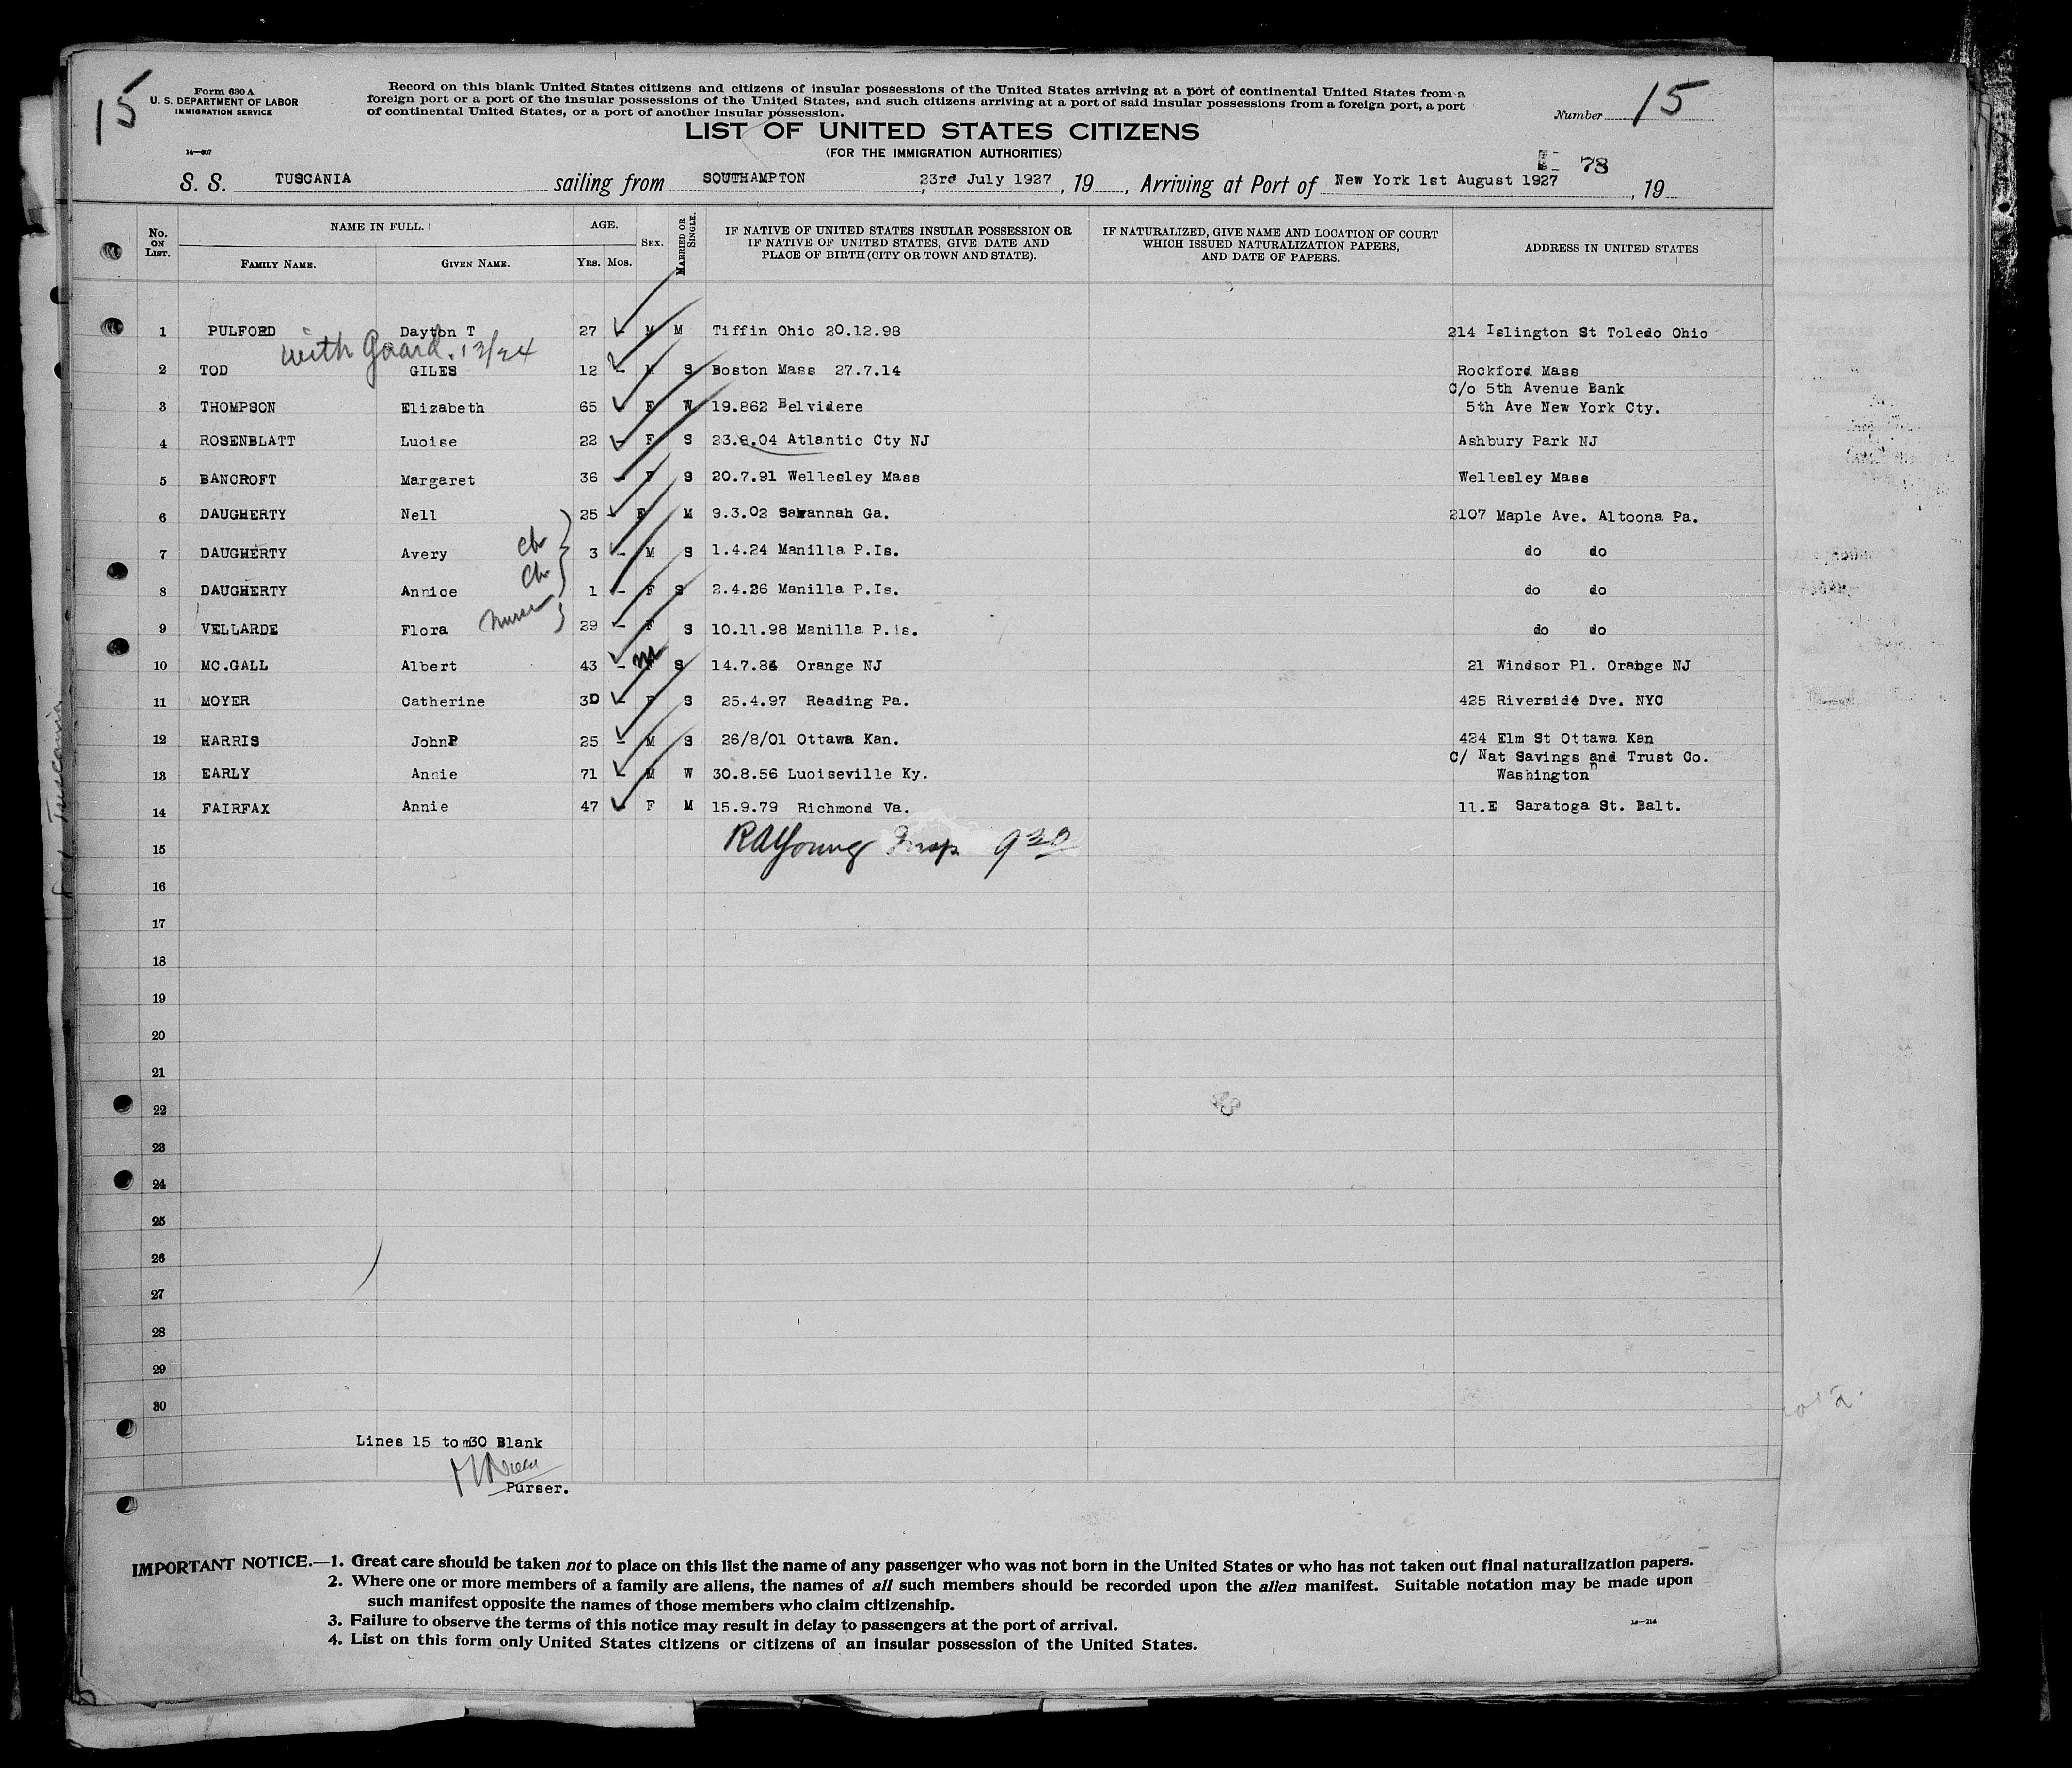 15
Form 630 A
U. S. DEPARTMENT OF LABOR
IMMIGRATION SERVICE
14—607
Record on this blank United States citizens and citizens of insular possessions of the United States arriving at a port of continental United States from a
foreign port or a port of the insular possessions of the United States, and such citizens arriving at a port of said insular possessions from a foreign port, a port
of continental United States, or a port of another insular possession.
Number 15
LIST OF UNITED STATES CITIZENS
(FOR THE IMMIGRATION AUTHORITIES)
78
S. S. TUSCANIA sailing from SOUTHAMPTON 23rd July 1927, 19 , Arriving at Port of New York 1st August 1927, 19
No. ON LIST. NAME IN FULL. AGE. SEX. MARRIED OR SINGLE. IF NATIVE OF UNITED STATES INSULAR POSSESSION OR IF NATIVE OF UNITED STATES, GIVE DATE AND PLACE OF BIRTH (CITY OR TOWN AND STATE). IF NATURALIZED, GIVE NAME AND LOCATION OF COURT WHICH ISSUED NATURALIZATION PAPERS, AND DATE OF PAPERS. ADDRESS IN UNITED STATES
FAMILY NAME. GIVEN NAME. YRS. MOS.
1 PULFORD Dayton T 27 - M M Tiffin Ohio 20.12.98 214 Islington St Toledo Ohio
with Guard. 13/24
2 TOD GILES 12 - M S Boston Mass 27.7.14 Rockford Mass
C/o 5th Avenue Bank
3 THOMPSON Elizabeth 65 - F W 19.862 Belvidere 5th Ave New York Cty.
4 ROSENBLATT Luoise 22 - F S 23.8.04 Atlantic Cty NJ Ashbury Park NJ
5 BANCROFT Margaret 36 - F S 20.7.91 Wellesley Mass Wellesley Mass
6 DAUGHERTY Nell 25 - F M 9.3.02 Savannah Ga. 2107 Maple Ave. Altoona Pa.
7 DAUGHERTY Avery ch 3 - M S 1.4.24 Manilla P.Is. do do
8 DAUGHERTY Annice ch 1 - F S 2.4.26 Manilla P.Is. do do
9 VELLARDE Flora nurse 29 - F S 10.11.98 Manilla P.is. do do
10 MC.GALL Albert 43 - m S 14.7.84 Orange NJ 21 Windsor Pl. Orange NJ
11 MOYER Catherine 30 - F S 25.4.97 Reading Pa. 425 Riverside Dve. NYC
12 HARRIS JohnP 25 - M S 26/8/01 Ottawa Kan. 424 Elm St Ottawa Kan
C/ Nat Savings and Trust Co.
13 EARLY Annie 71 - M W 30.8.56 Luoiseville Ky. Washington
14 FAIRFAX Annie 47 - F M 15.9.79 Richmond Va. 11.E Saratoga St. Balt.
15 RA Young Insp. 930
16
17
18
19
20
21
22
23
24
25
26
27
28
29
30
Lines 15 to 30 Blank
Purser.
IMPORTANT NOTICE.—1. Great care should be taken not to place on this list the name of any passenger who was not born in the United States or who has not taken out final naturalization papers.
2. Where one or more members of a family are aliens, the names of all such members should be recorded upon the alien manifest. Suitable notation may be made upon
such manifest opposite the names of those members who claim citizenship.
3. Failure to observe the terms of this notice may result in delay to passengers at the port of arrival.
4. List on this form only United States citizens or citizens of an insular possession of the United States.
14—214